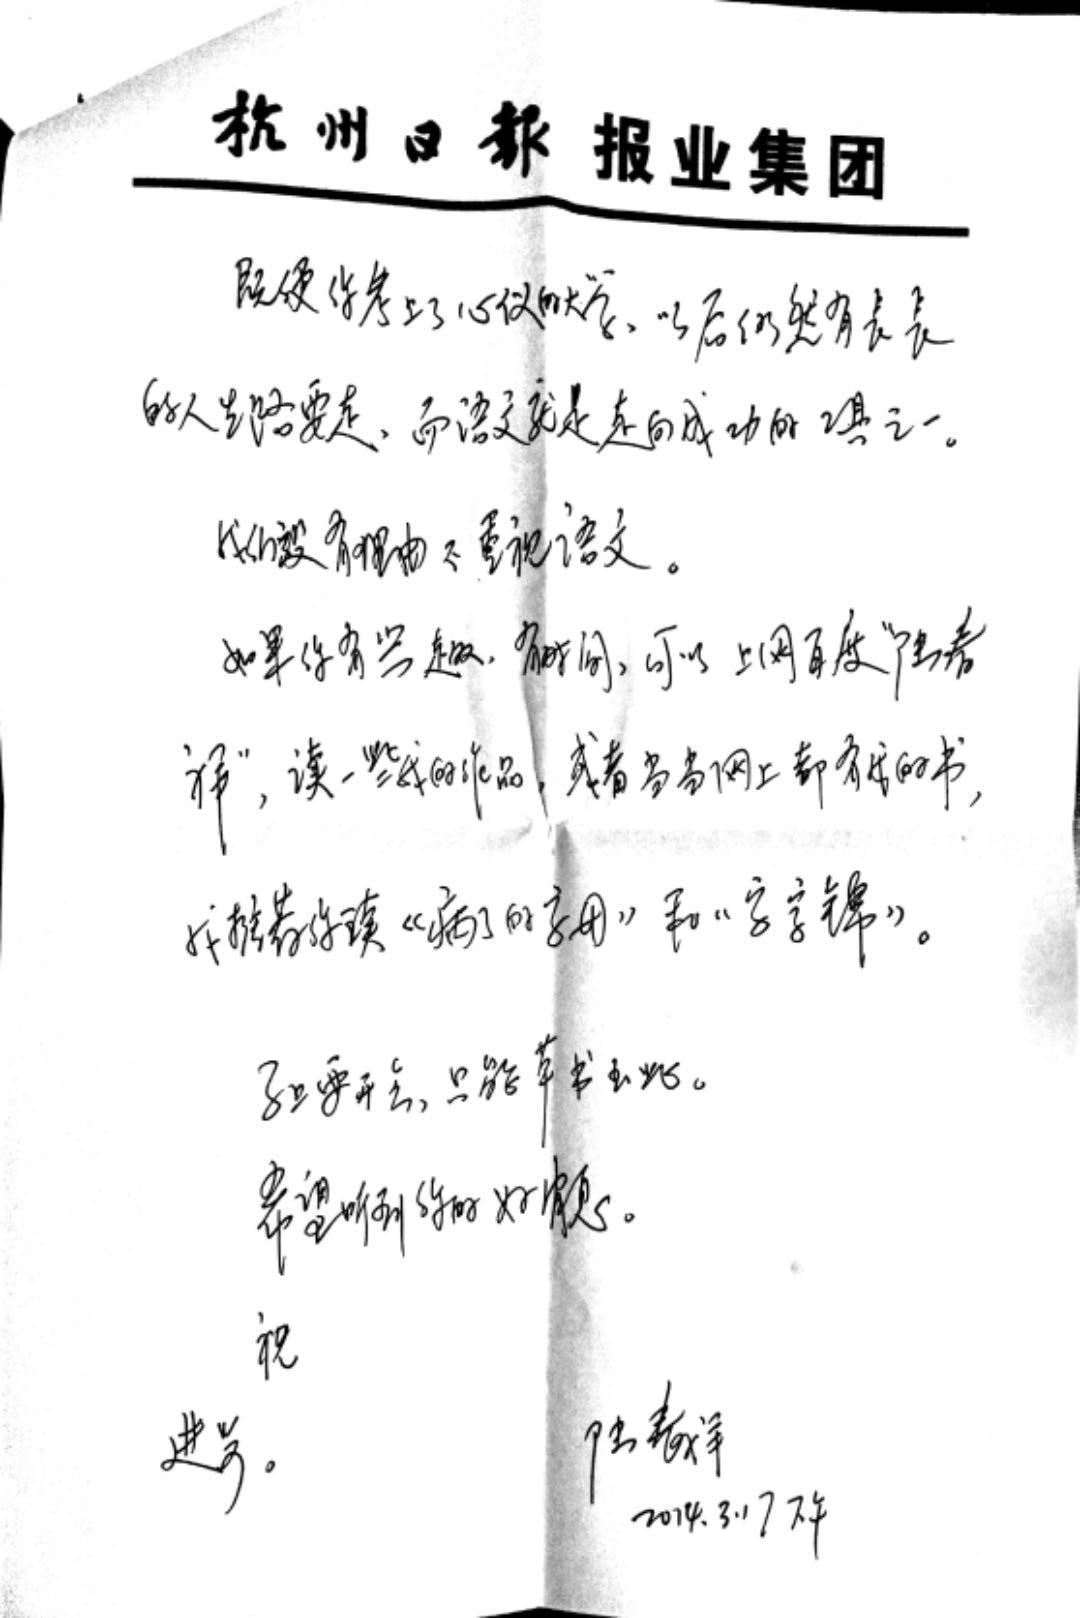 杭州日报 报业集团
既便你考上了心仪的大学、以后仍然有長長
的人生路要走、而语文就是走向成功的工具之一。
我们没有理由不重视语文。
如果你有兴趣、有时间、可以上网百度“陆春
祥”，读一些我的作品，或者当当网上都有我的书，
我推荐你读《病了的字母》和《字字锦》。
要开会、只能草书至此。
希望听到你的好消息。
祝
进步。
陆春祥
2014.3.17 下午